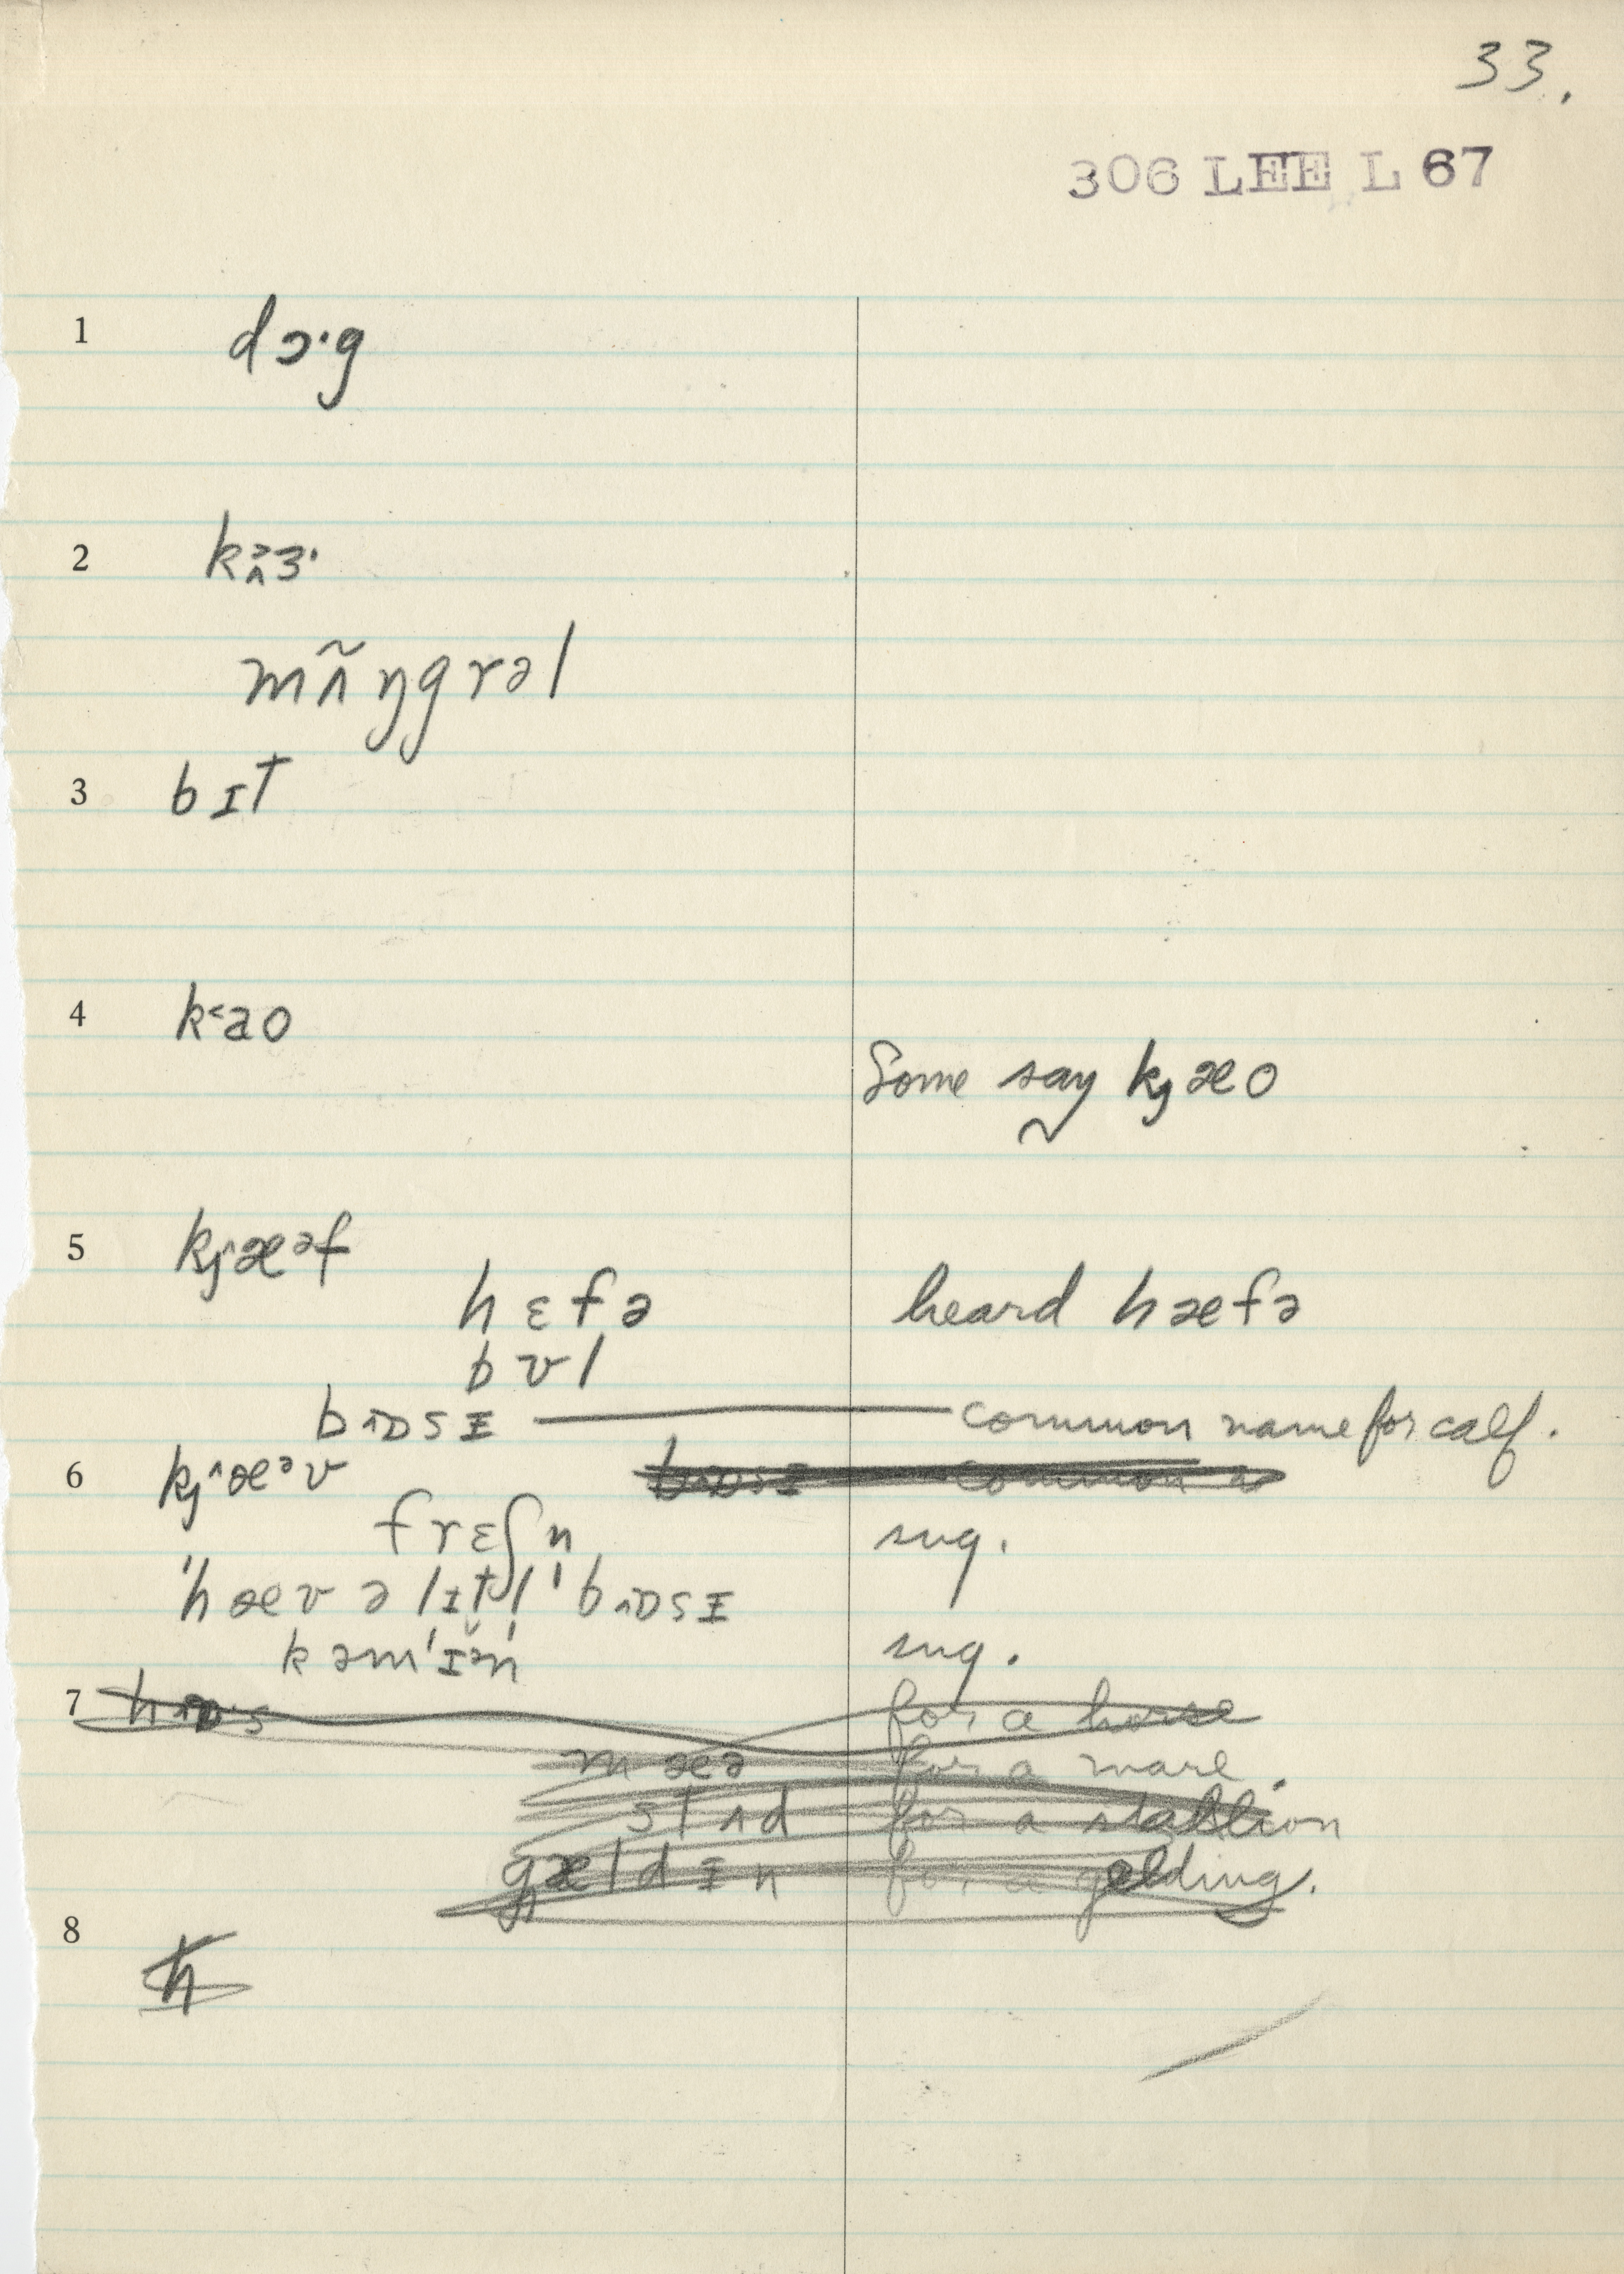 33.
306 LEE L 67
1 dɔ·g
2 kʌ̂ɜ·
mʌ̃ŋgrəl
3 bɪt
4 k˂ao
Some say kjæo
5 kj^æᵊf
hɛfə heard hæfə
bʊl
bʌɒsɪ — common name for calf.
6 kj^æᵊv
frɛʃn sug.
"hæv ə lɪtl̩ 'bʌɒsɪ
kəm'ɪə̆n' sug.
7 for a horse
mæə for a mare.
stʌd for a stallion
gældɪn for a gelding.
8 h